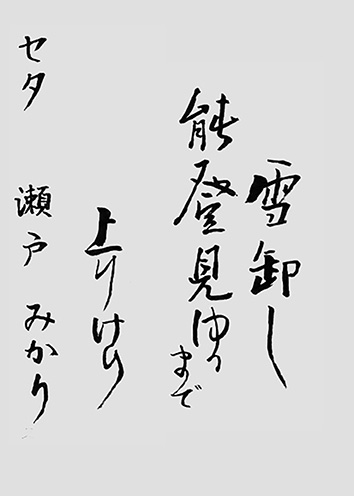 雪卸し
能登見ゆるまで
上りけり
セタ 瀬戸 みかり